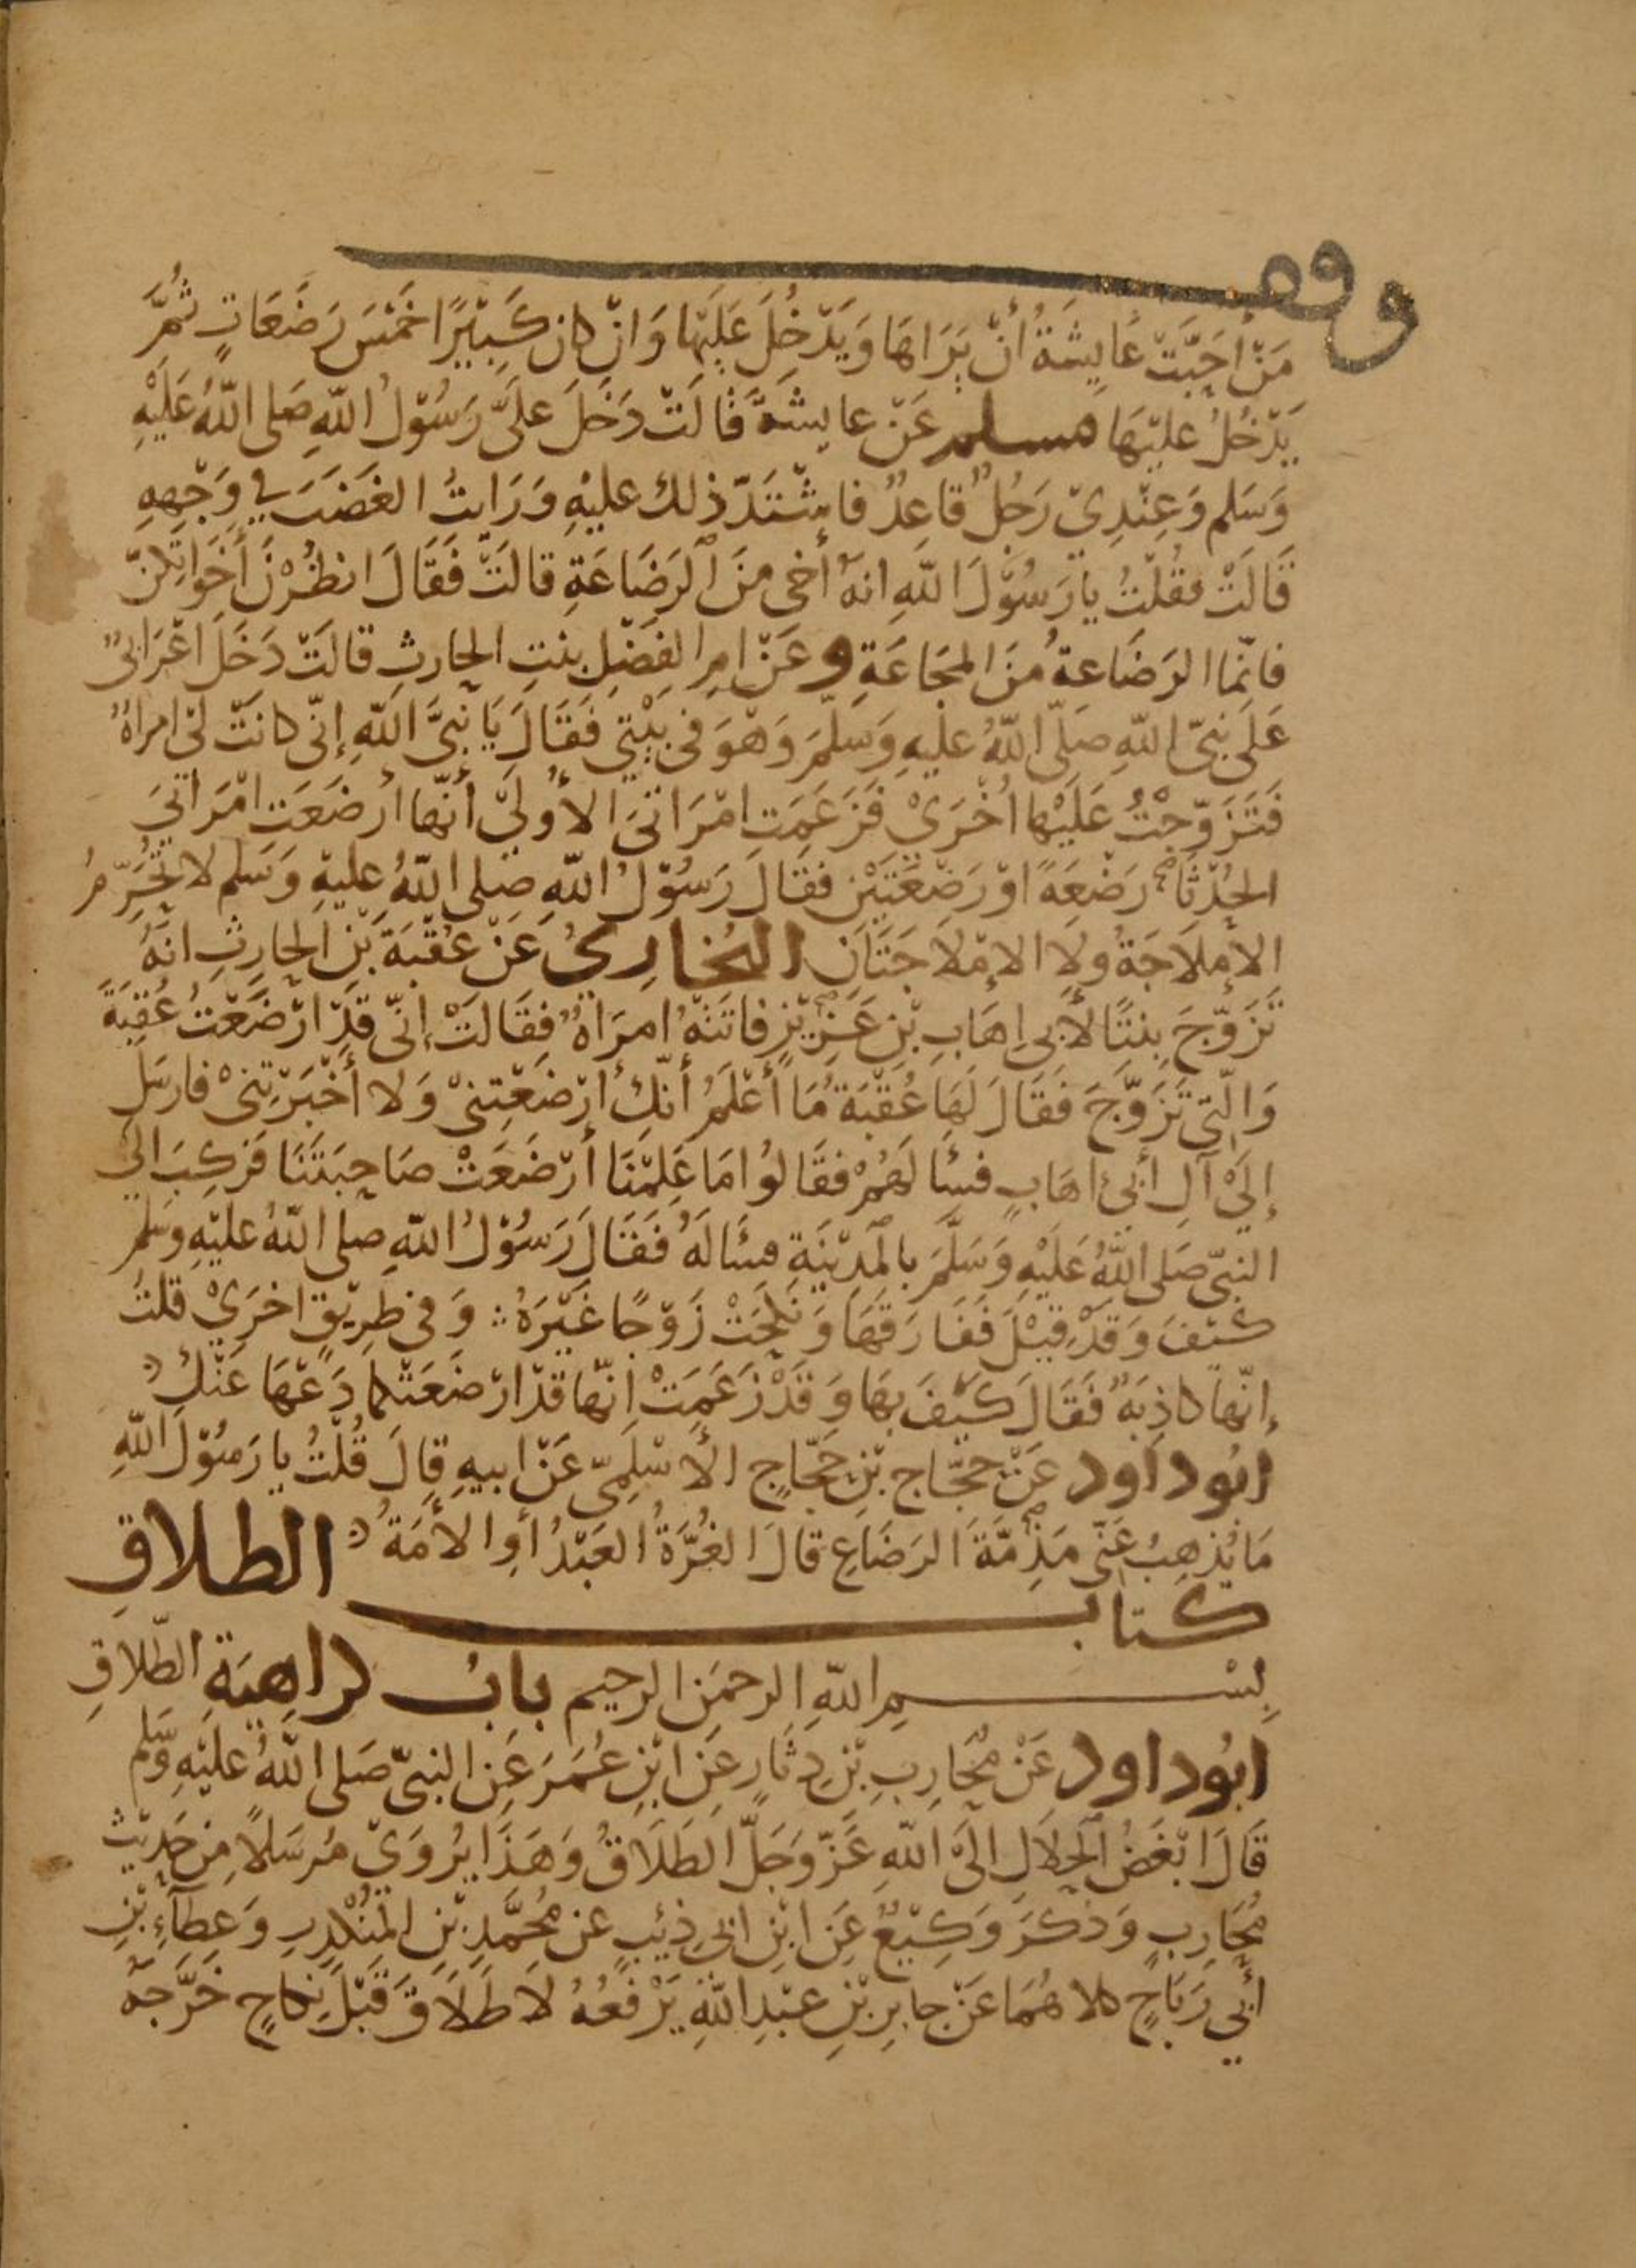 وقف
مَنْ أحَبَّتْ عَايِشَةُ أنْ يَرَاهَا وَيَدْخِلَ عَلَيْها وَانْ كان كَبِيْرًا خَمْسَ رَضَعَاتٍ ثُمَّ
يَدْخُلُ عليْهَا مسلم عَنْ عايشةَ قالَتْ دَخَلَ علىَّ رَسُوْلُ اللهِ صَلى اللهُ عَلَيْهِ
وَسَلم وَعِنْدِيْ رَجُلٌ قاعِدٌ فاشْتَدَّ ذلك عليْهِ وَرَايتُ الغَضَبَ في وَجْهِهِ
قَالَتْ فقُلْتُ يا رَسُوْلَ اللهِ انهُ أخى منَ الرَضَاعَةِ قالَتْ فَقَالَ انظُرْنَ أخَوَاتِكُنّ
فانّما الرَضَاعةُ منَ المجَاعَةِ وعَنْ امِ الفَضْلِ بنتِ الحارثِ قالَتْ دَخَلَ اعْرَابىٌّ
عَلَى نبىّ اللهِ صَلّى اللهُ عليهِ وَسَلّمَ وَهْوَ فى بَيْتِي فَقَالَ يَا نَبِىَّ اللهِ إنّى كانَتْ لىْ امراةٌ
فَتَزَوّجْتُ عَلَيْها اُخْرَيْ فَزَعَمَتِ امْرَاتىَ الأوليْ أنّها أرضَعَت امْرَاتىَ
الحُدْثَا رَضْعَةً اوْ رَضْعَتَيْن فقَالَ رَسُوْلُ اللهِ صلى اللهُ عليهِ وَسَلم لا تُحَرِّمُ
الإملَاجَةُ ولا الإمْلاجَتَانِ البُخَارِيُّ عَنْ عُقْبَةَ بْنِ الحارثِ انهُ
تَزَوّجَ بِنتًا لأبى اِهَابِ بْنِ عَزِيْزٍ فاتَتْهُ امرَاةٌ فقَالَتْ إنّى قَدْ ارْضَعْتُ عُقبَةَ
وَالّتِى تَزَوَّجَ فَقَالَ لَهَا عُقْبَةُ مَا أعْلَمُ أنّكِ أرْضَعْتِنىْ وَلا أخْبَرْتِنىْ فارسَل
إلَيْ آلِ أبى اهَابٍ فسَأَلَهُمْ فقَالوُا مَا عَلِمْنَا أرْضَعَتْ صَاحِبَتَنَا فَرَكِبَ الي
النبىّ صَلى اللهُ عَلَيْهِ وَسَلَّمَ بالمَدِيْنَةِ فسَالَهُ فَقَالَ رَسُوْلُ اللهِ صلى اللهُ عليْهِ وسَلمَ
كيْفَ وَقَدْ قِيْلَ فَفَارَقَهَا وَنكَحَتْ زَوْجًا غَيْرَهُ وَفى طرِيْقٍ اخرَيْ قلتُ
إنّها كاذِبَةٌ فَقَالَ كَيْفَ بهَا وَقَدْ زَعَمَتْ انّها قَدْ ارْضَعَتْكما دَعْهَا عَنْكَ
ابُو داود عَنْ حَجّاج بْنِ حَجّاجٍ الأسْلَمِىّ عَنْ ابيهِ قالَ قُلْتُ يا رَسُوْلَ اللهِ
مَا يُذهِبُ عَنّى مَذِمّةَ الرَضَاعِ قالَ الغُرَّةُ العَبْدُ أوِ الأمَةُ
كتاب الطلاقِ
بِسْمِ اللهِ الرحمَنِ الرحيم بابُ كراهِيَةِ الطّلاقِ
ابُو داود عَنْ مُحَارِبِ بْنِ دِثَارٍ عَنِ ابْنِ عُمَرَ عَنِ النبىّ صَلى اللهُ عليْهِ وسَّلم
قَالَ ابْغَضُ الحَلَالِ الَىْ اللهِ عَزّ وَجَلّ الطَلَاقُ وَهَذَا يُرْوَيْ مُرسَلاً مِن حَدِيْثِ
مُحَارِبٍ وَذكَرَ وَكِيْعٌ عَنِ ابْنِ ابى ذِئبٍ عَن مُحَمَّدِ بْنِ المُنْكَدِرِ وَعطَآءِ بْنِ
أبي رَبَاحٍ كلاهُمَا عَنْ جابِرِ بْنِ عبْدِ اللهِ يَرْفَعُهُ لا طَلَاقَ قَبْلَ نِكاحٍ خَرَّجَهُ